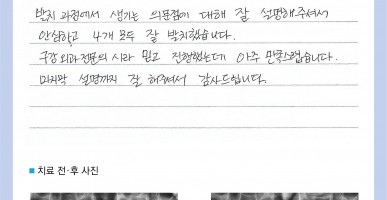 발치 과정에서 생기는 의문점이 대해 잘 설명해주셔서
안심하고 4개 모두 잘 발치했습니다.
구강외과전문의시라 믿고 진행했는데 아주 만족스럽습니다.
마지막 설명까지 잘 해주셔서 감사드립니다.
■ 치료 전·후 사진